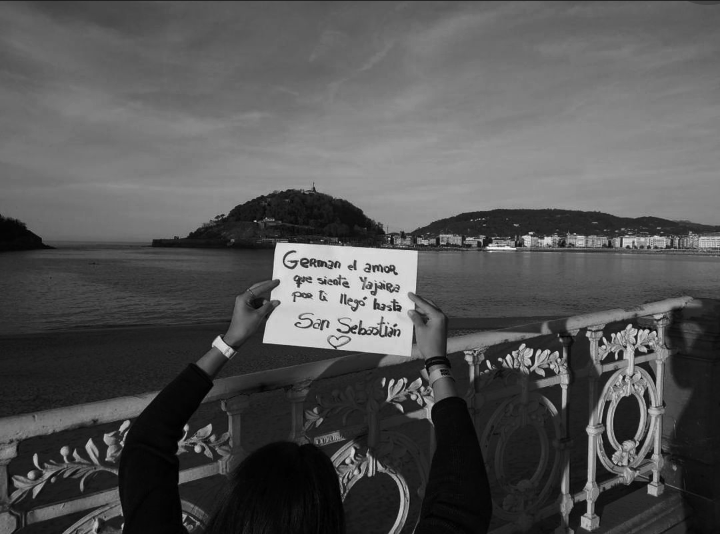 German el amor
que siente Yajaira
por ti llegó hasta
San Sebastián